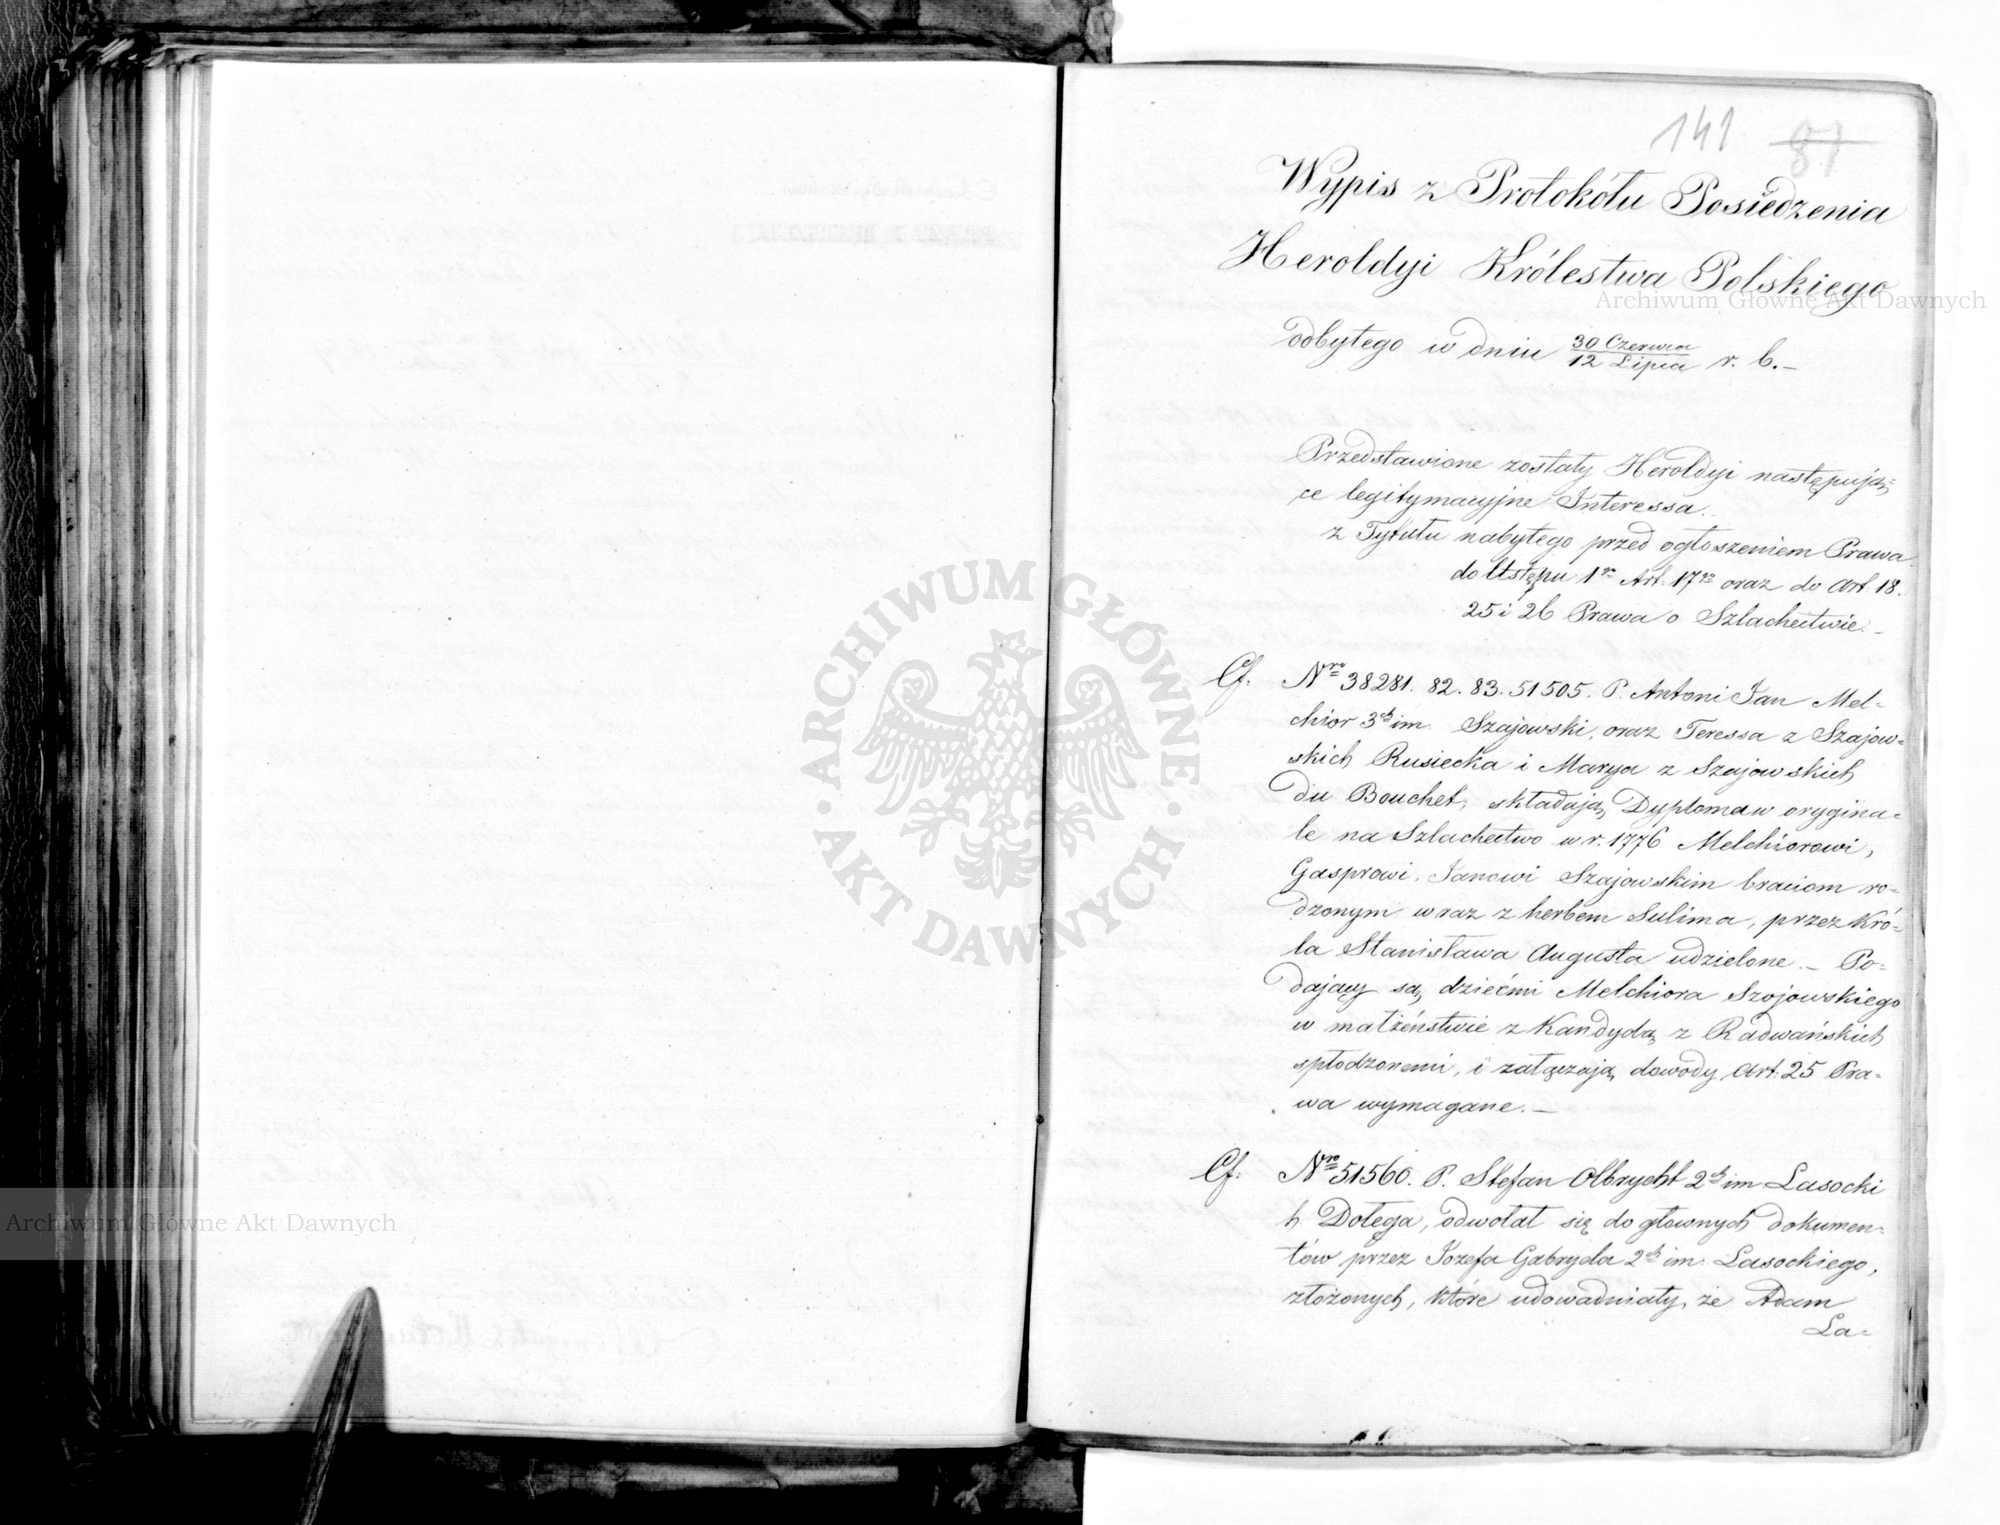 141 87
Wypis z Protokółu Posiedzenia
Heroldyi Królestwa Polskiego
odbytego w dniu 30 Czerwca / 12 Lipca r. b. –
Przedstawione zostały Heroldyi następują=
ce legitymacyjne Interessa. –
z Tytułu nabytego przed ogłoszeniem Prawa
do Ustępu 1go Art. 17go oraz do Art. 18.
25 i 26 Prawa o Szlachectwie. –
Cf. Nro 38281. 82. 83. 51505. P. Antoni Jan Mel=
chior 3ch im. Szajowski, oraz Teressa z Szajow=
skich Rusiecka i Marya z Szajowskich
du Bouchet, składają Dyploma w orygina=
le na Szlachectwo w r. 1776 Melchiorowi,
Gasprowi, Janowi Szajowskim braciom ro=
dzonym wraz z herbem Sulima, przez Kró=
la Stanisława Augusta udzielone. – Po=
dający są dziećmi Melchiora Szojowskiego
w małżeństwie z Kandydą z Radwańskich
spłodzonemi, i załączają dowody Art. 25 Pra=
wa wymagane. –
Cf. Nro 51560. P. Stefan Olbrycht 2ch im Lasocki
h. Dołega, odwołał się do głownych dokumen=
tów przez Jozefa Gabryela 2ch im. Lasockiego,
złożonych, które udowadniały, że Adam
La=
Archiwum Główne Akt Dawnych
ARCHIWUM GŁÓWNE · AKT DAWNYCH ·
Archiwum Główne Akt Dawnych